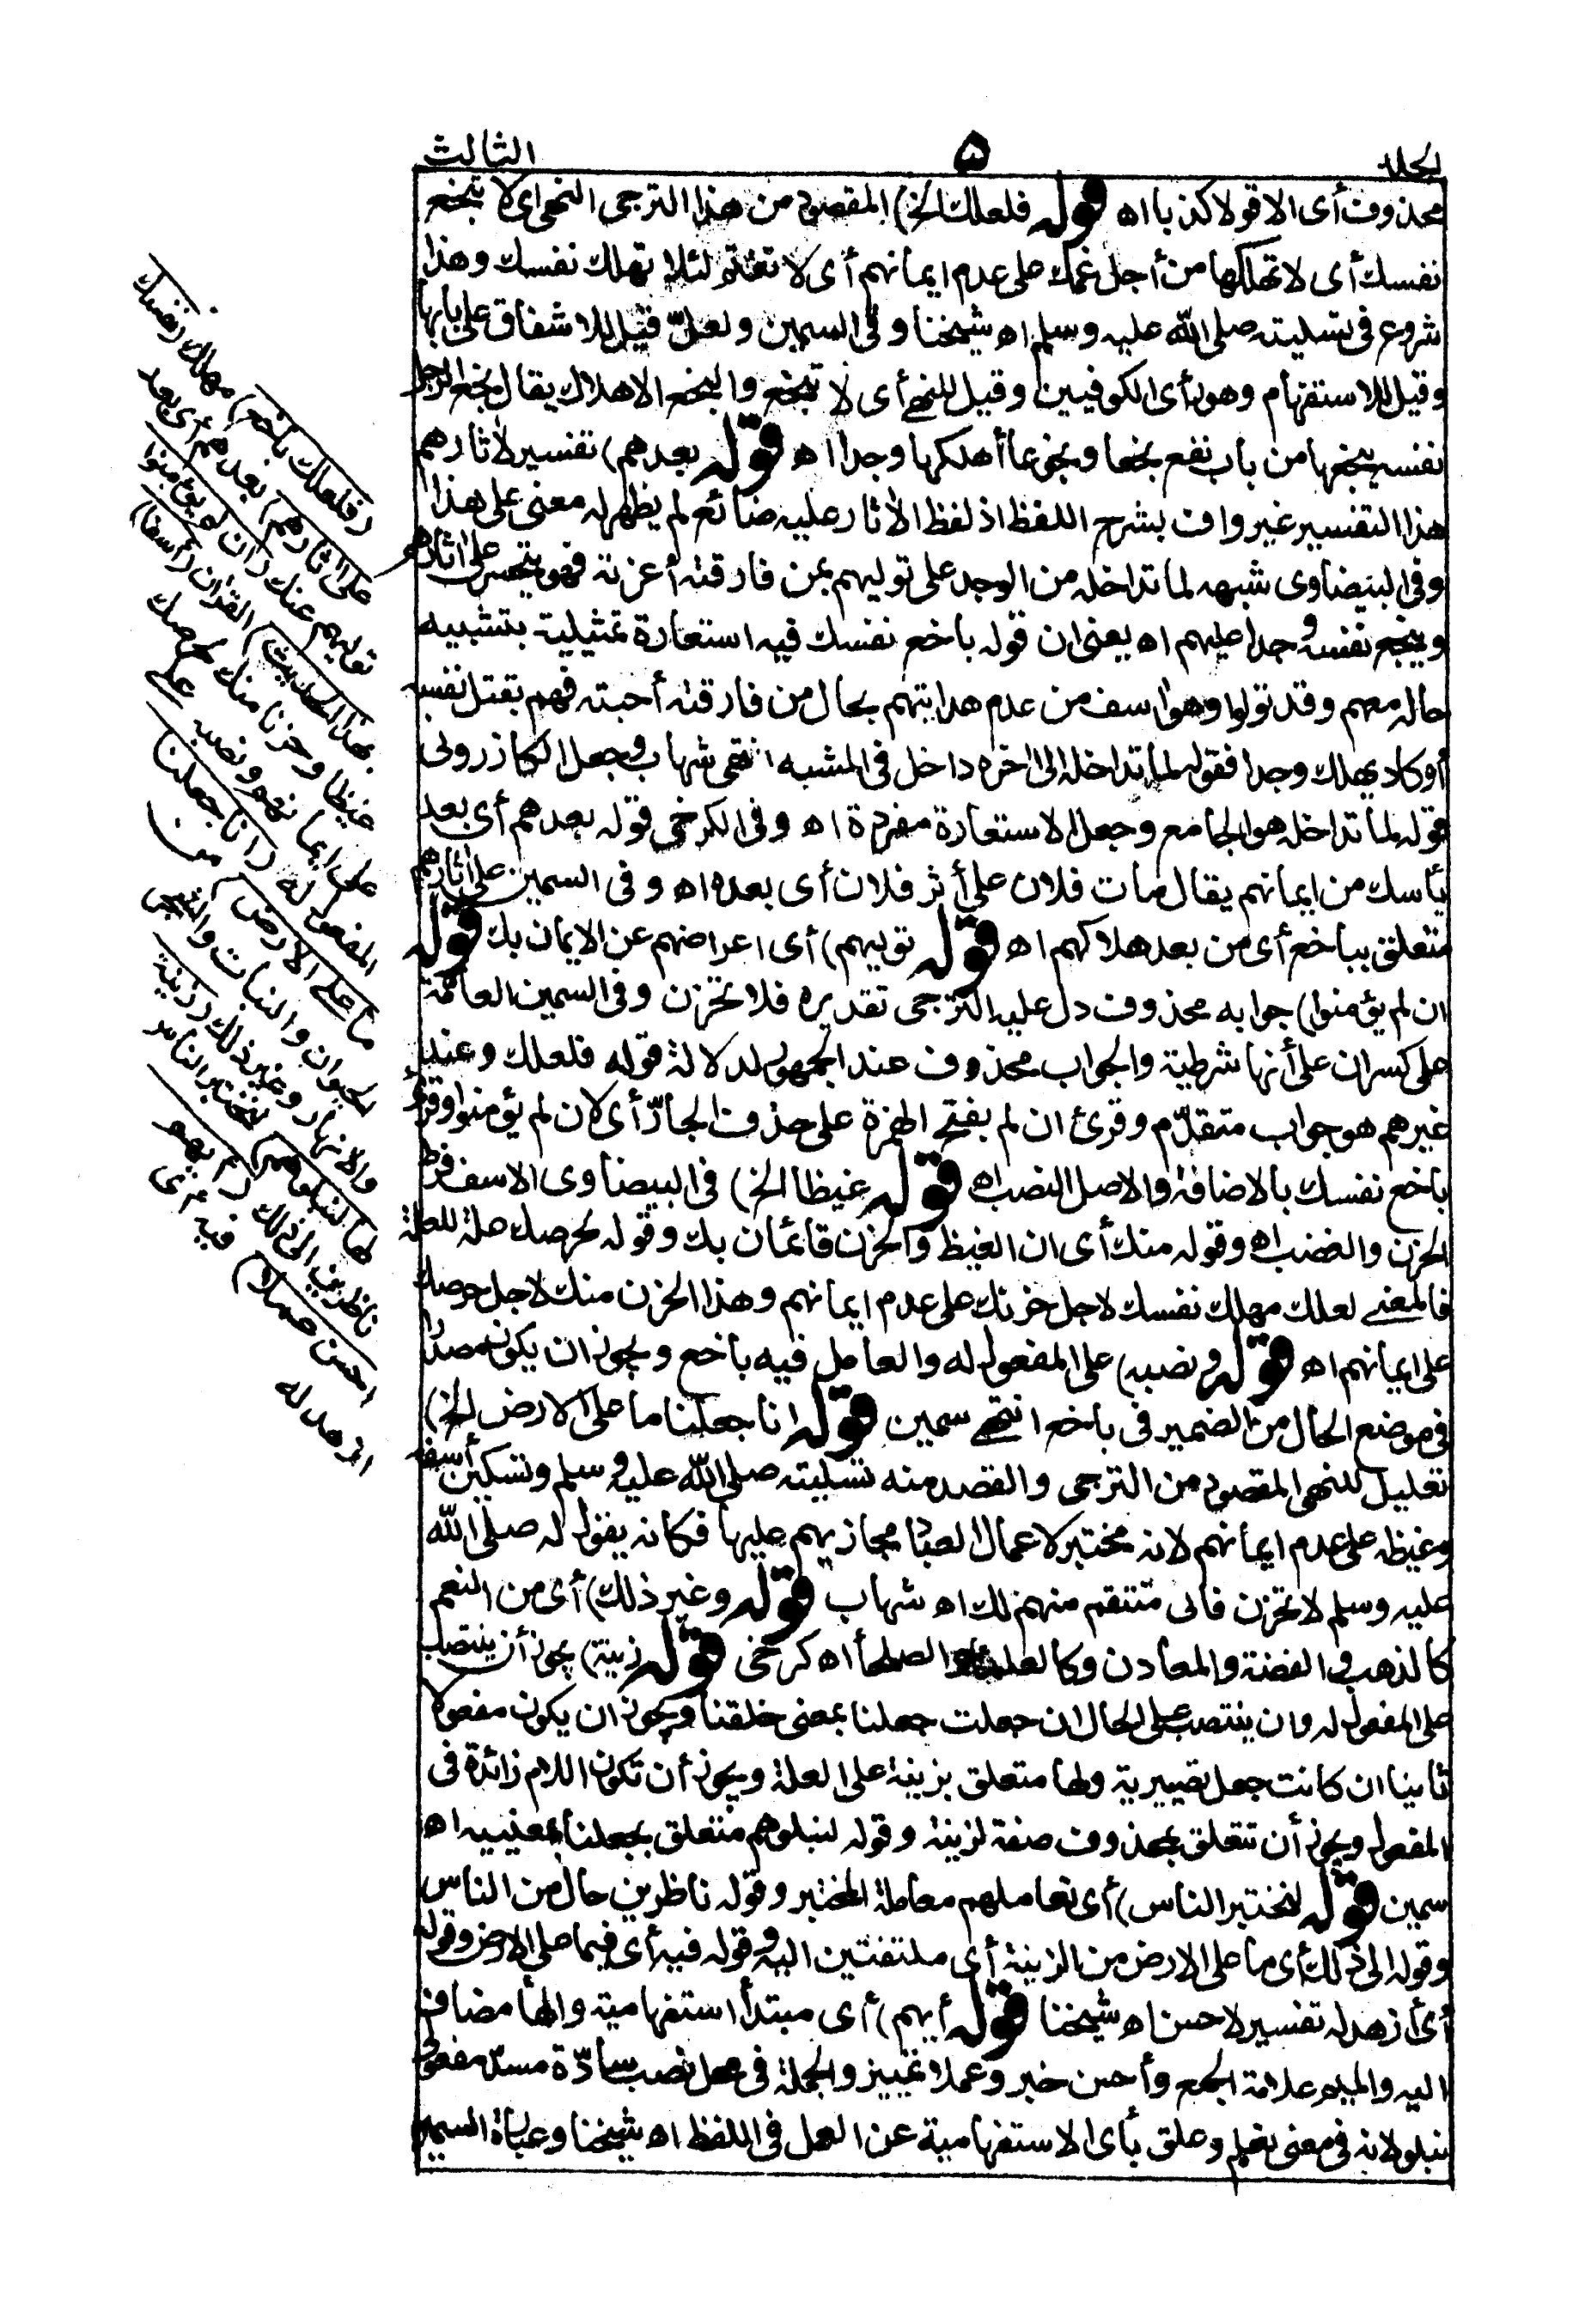 الجلد
۵
الثالث
محذوف أى الا قولا كذبا اه قوله فلعلك الخ) المقصود من هذا الترجى النهى اى لا تبخع
نفسك أى لا تهلكها من أجل غمك على عدم ايمانهم أى لا تغتم لئلا تهلك نفسك وهذا
شروع فى تسليته صلى الله عليه وسلم اه شيخنا وفى السمين ولعلّ قيل للاشفاق على بابها
وقيل للاستفهام وهو رأى الكوفيين وقيل للنهى أى لا تبخع والبخع الاهلاك يقال بخع الرجل
نفسه يبخعها من باب نفع بخعا وبخوعا أهلكها وجدا اه قوله بعدهم) تفسير لآثارهم
هذا التفسير غير واف بشرح اللفظ اذ لفظ الآثار عليه ضائع لم يظهر له معنى على هذا
وفى البيضاوى شبهه لما تداخله من الوجد على توليهم بمن فارقته أعزته فهو يتحسر على اثارهم
ويبخع نفسه وجدا عليهم اه يعنى ان قوله باخع نفسك فيه استعارة تمثيلية بتشبيه
حاله معهم وقد تولوا وهو اسف من عدم هدايتهم بحال من فارقته أحبته فهم بقتل نفسه
أوكاد يهلك وجدا فقوله لما تداخله الى اخره داخل فى المشبه انتهى شهاب وجعل الكازرونى
قوله لما تداخله هو الجامع وجعل الاستعارة مفردة اه وفى الكرخى قوله بعدهم أى بعد
يأسك من ايمانهم يقال مات فلان على أثر فلان أى بعده اه وفى السمين على آثارهم
متعلق بباخع أى من بعد هلاكهم اه قوله توليهم) أى اعراضهم عن الايمان بك قوله
ان لم يؤمنوا) جوابه محذوف دل عليه الترجى تقديره فلا تحزن وفى السمين العامّة
على كسر ان على أنها شرطية والجواب محذوف عند الجمهور لدلالة قوله فلعلك وعند
غيرهم هو جواب متقدّم وقرئ ان لم بفتح الهمزة على حذف الجارّ أى لان لم يؤمنوا وقرئ
باخع نفسك بالاضافة والاصل النصب اه قوله غيظا الخ) فى البيضاوى الاسف فرط
الحزن والغضب اه وقوله منك أى ان الغيظ والحزن قائمان بك وقوله لحرصك علة للعلة
فالمعنى لعلك مهلك نفسك لاجل حزنك على عدم ايمانهم وهذا الحزن منك لاجل حرصك
على ايمانهم اه قوله ونصبه) على المفعول له والعامل فيه باخع ويجوز ان يكون مصدرا
فى موضع الحال من الضمير فى باخع انتهى سمين قوله انا جعلنا ما على الارض الخ)
تعليل للنهى المقصود من الترجى والقصد منه تسليته صلى الله عليه وسلم وتسكين أسفه
وغيظه على عدم ايمانهم لانه مختبر لاعمال العباد مجازيهم عليها فكانه يقول له صلى الله
عليه وسلم لا تحزن فانى منتقم منهم لك اه شهاب قوله وغير ذلك) أى من النعم
كالذهب والفضة والمعادن وكالعلماء والصلحأ اه كرخى قوله زينة) يجوز أن ينتصب
على المفعول له وان ينتصب على الحال ان جعلت جعلنا بمعنى خلقنا ويجوز ان يكون مفعولا
ثانيا ان كانت جعل تصييرية ولها متعلق بزينة على العلة ويجوز أن تكون اللام زائدة فى
المفعول ويجوز أن تتعلق بمحذوف صفة لزينة وقوله لنبلوهم متعلق بجعلنا بمعنييه اه
سمين قوله لنختبر الناس) أى نعاملهم معاملة المختبر وقوله ناظرين حال من الناس
وقوله الى ذلك أى ما على الارض من الزينة أى ملتفتين اليه وقوله فيه أى فيما على الارض وقوله
أى أزهد له تفسير لاحسن اه شيخنا قوله أيهم) أى مبتدأ استفهامية والهأ مضاف
اليه والميم علامة الجمع وأحسن خبر وعملا تمييز والجملة فى محل نصب سادّة مسدّ مفعولى
نبلو لانه فى معنى نعلم وعلق بأى الاستفهامية عن العمل فى اللفظ اه شيخنا وعبارة السمين
(فلعلك باخع) مهلك (نفسك
على اثارهم) بعدهم أى بعد
توليهم عنك (ان لم يؤمنوا
بهذا الحديث) القرآن (أسفا)
غيظا وحزنا منك لحرصك
على ايمانهم ونصبه على
المفعول له (انا جعلنا
ما على الارض) من
الحيوان والنبات والشجر
والانهار وغير ذلك (زينة
لها لنبلوهم) لنختبر الناس
ناظرين الى ذلك (أيهم
احسن عملا) فيه أى
ازهد له